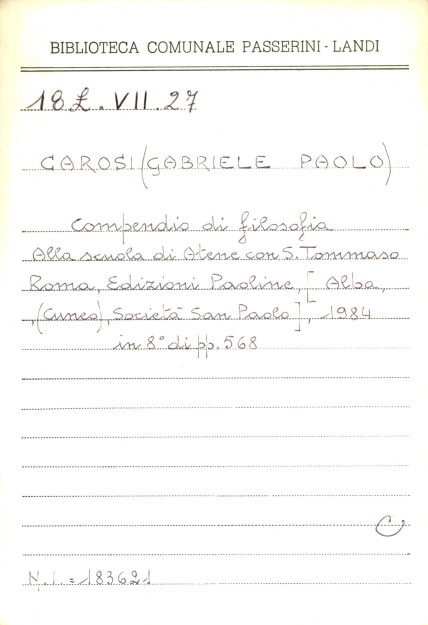 BIBLIOTECA COMUNALE PASSERINI - LANDI
18£. VII. 27
CAROSI (GABRIELE PAOLO)
Compendio di filosofia
Alla scuola di Atene con S. Tommaso
Roma, Edizioni Paoline, [Alba,
,(Cuneo), Società San Paolo], 1984
in 8° di pp. 568
C
N. I. = 183621